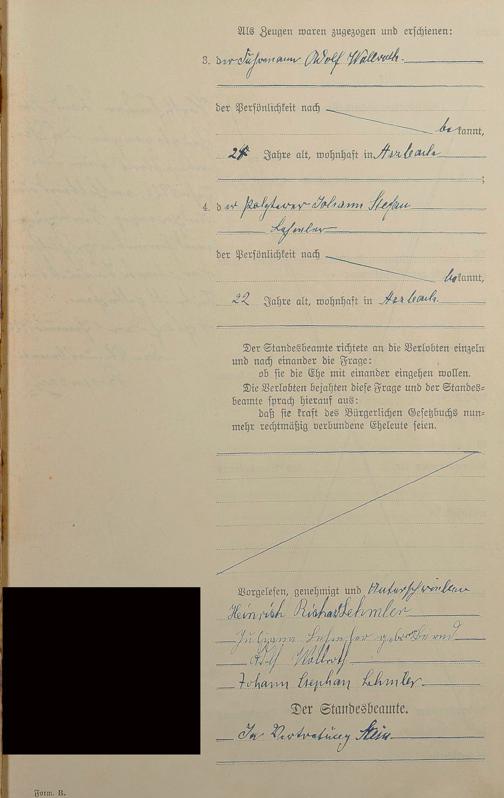 Als Zeugen waren zugezogen und erschienen:
3. der Fuhrmann Adolf Wallroth
der Persönlichkeit nach
bekannt,
24 Jahre alt, wohnhaft in
;
4. der Johann Stefan
Lehmler
der Persönlichkeit nach
bekannt,
22 Jahre alt, wohnhaft in
Der Standesbeamte richtete an die Verlobten einzeln
und nach einander die Frage:
ob sie die Ehe mit einander eingehen wollen.
Die Verlobten bejahten diese Frage und der Standes-
beamte sprach hierauf aus:
daß sie kraft des Bürgerlichen Gesetzbuchs nun-
mehr rechtmäßig verbundene Eheleute seien.
Vorgelesen, genehmigt und unterschrieben
Heinrich Richard Lehmler
Lehmler
Adolf Wallroth
Johann Stephan Lehmler
Der Standesbeamte.
In Vertretung Stein
Form. B.